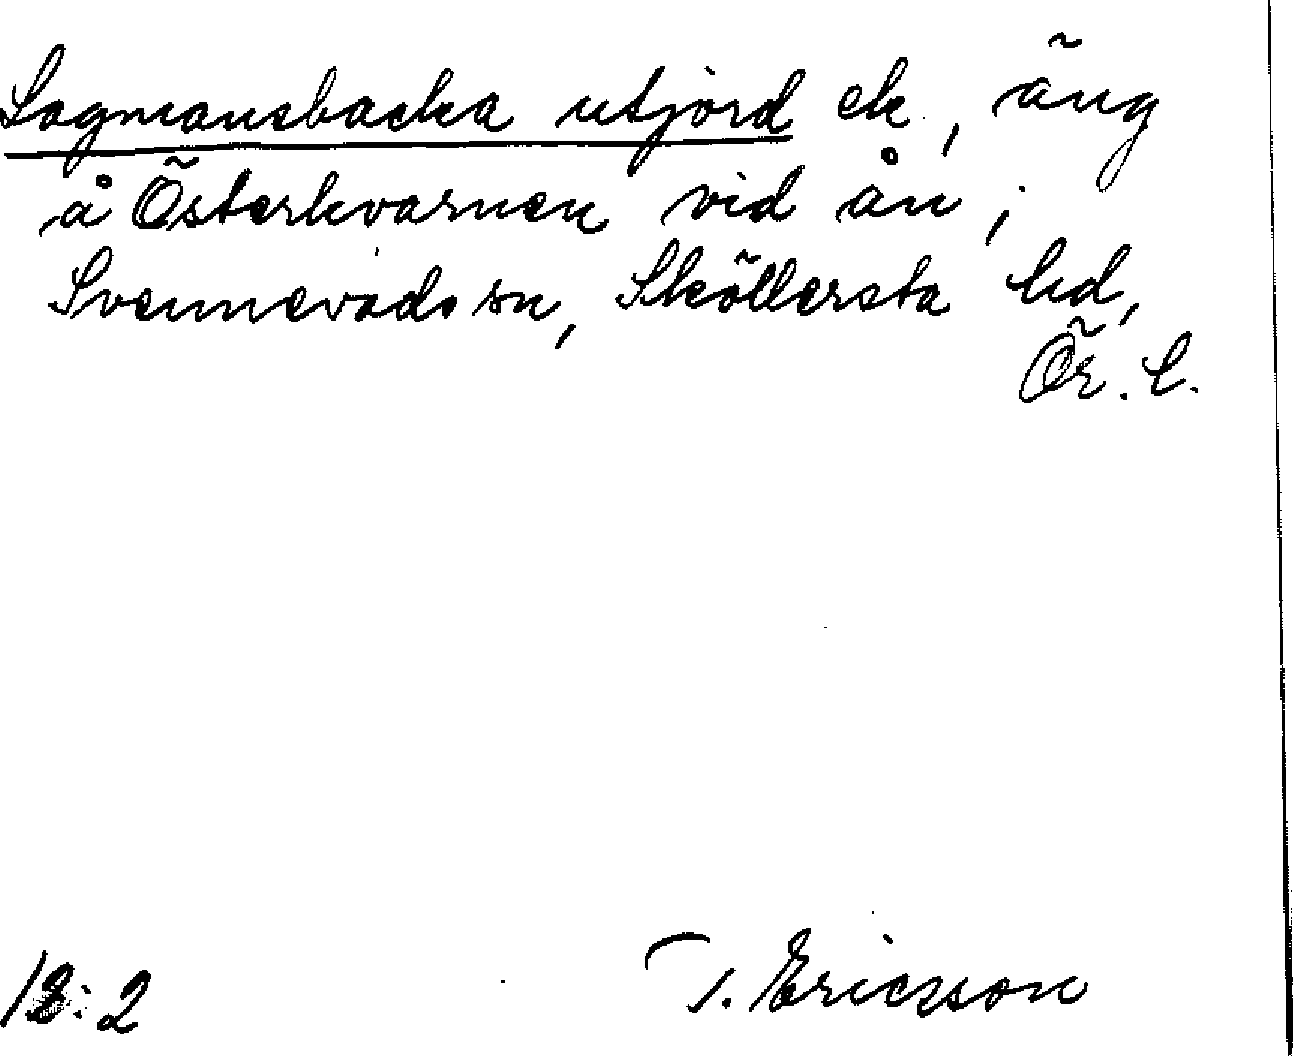 Lagmansbacka utjord ek, äng
å Österkvarnen vid ån;
Svennevads sn, Sköllersta hd,
Ör. l.
T. Ericsson